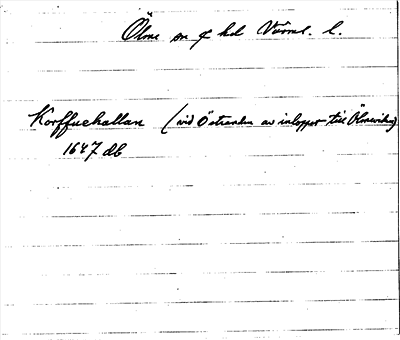 Ölme sn o hd Värml. l.
Korffuehallan (vid Östranden av inloppet till Ölmeviken)
1647 db